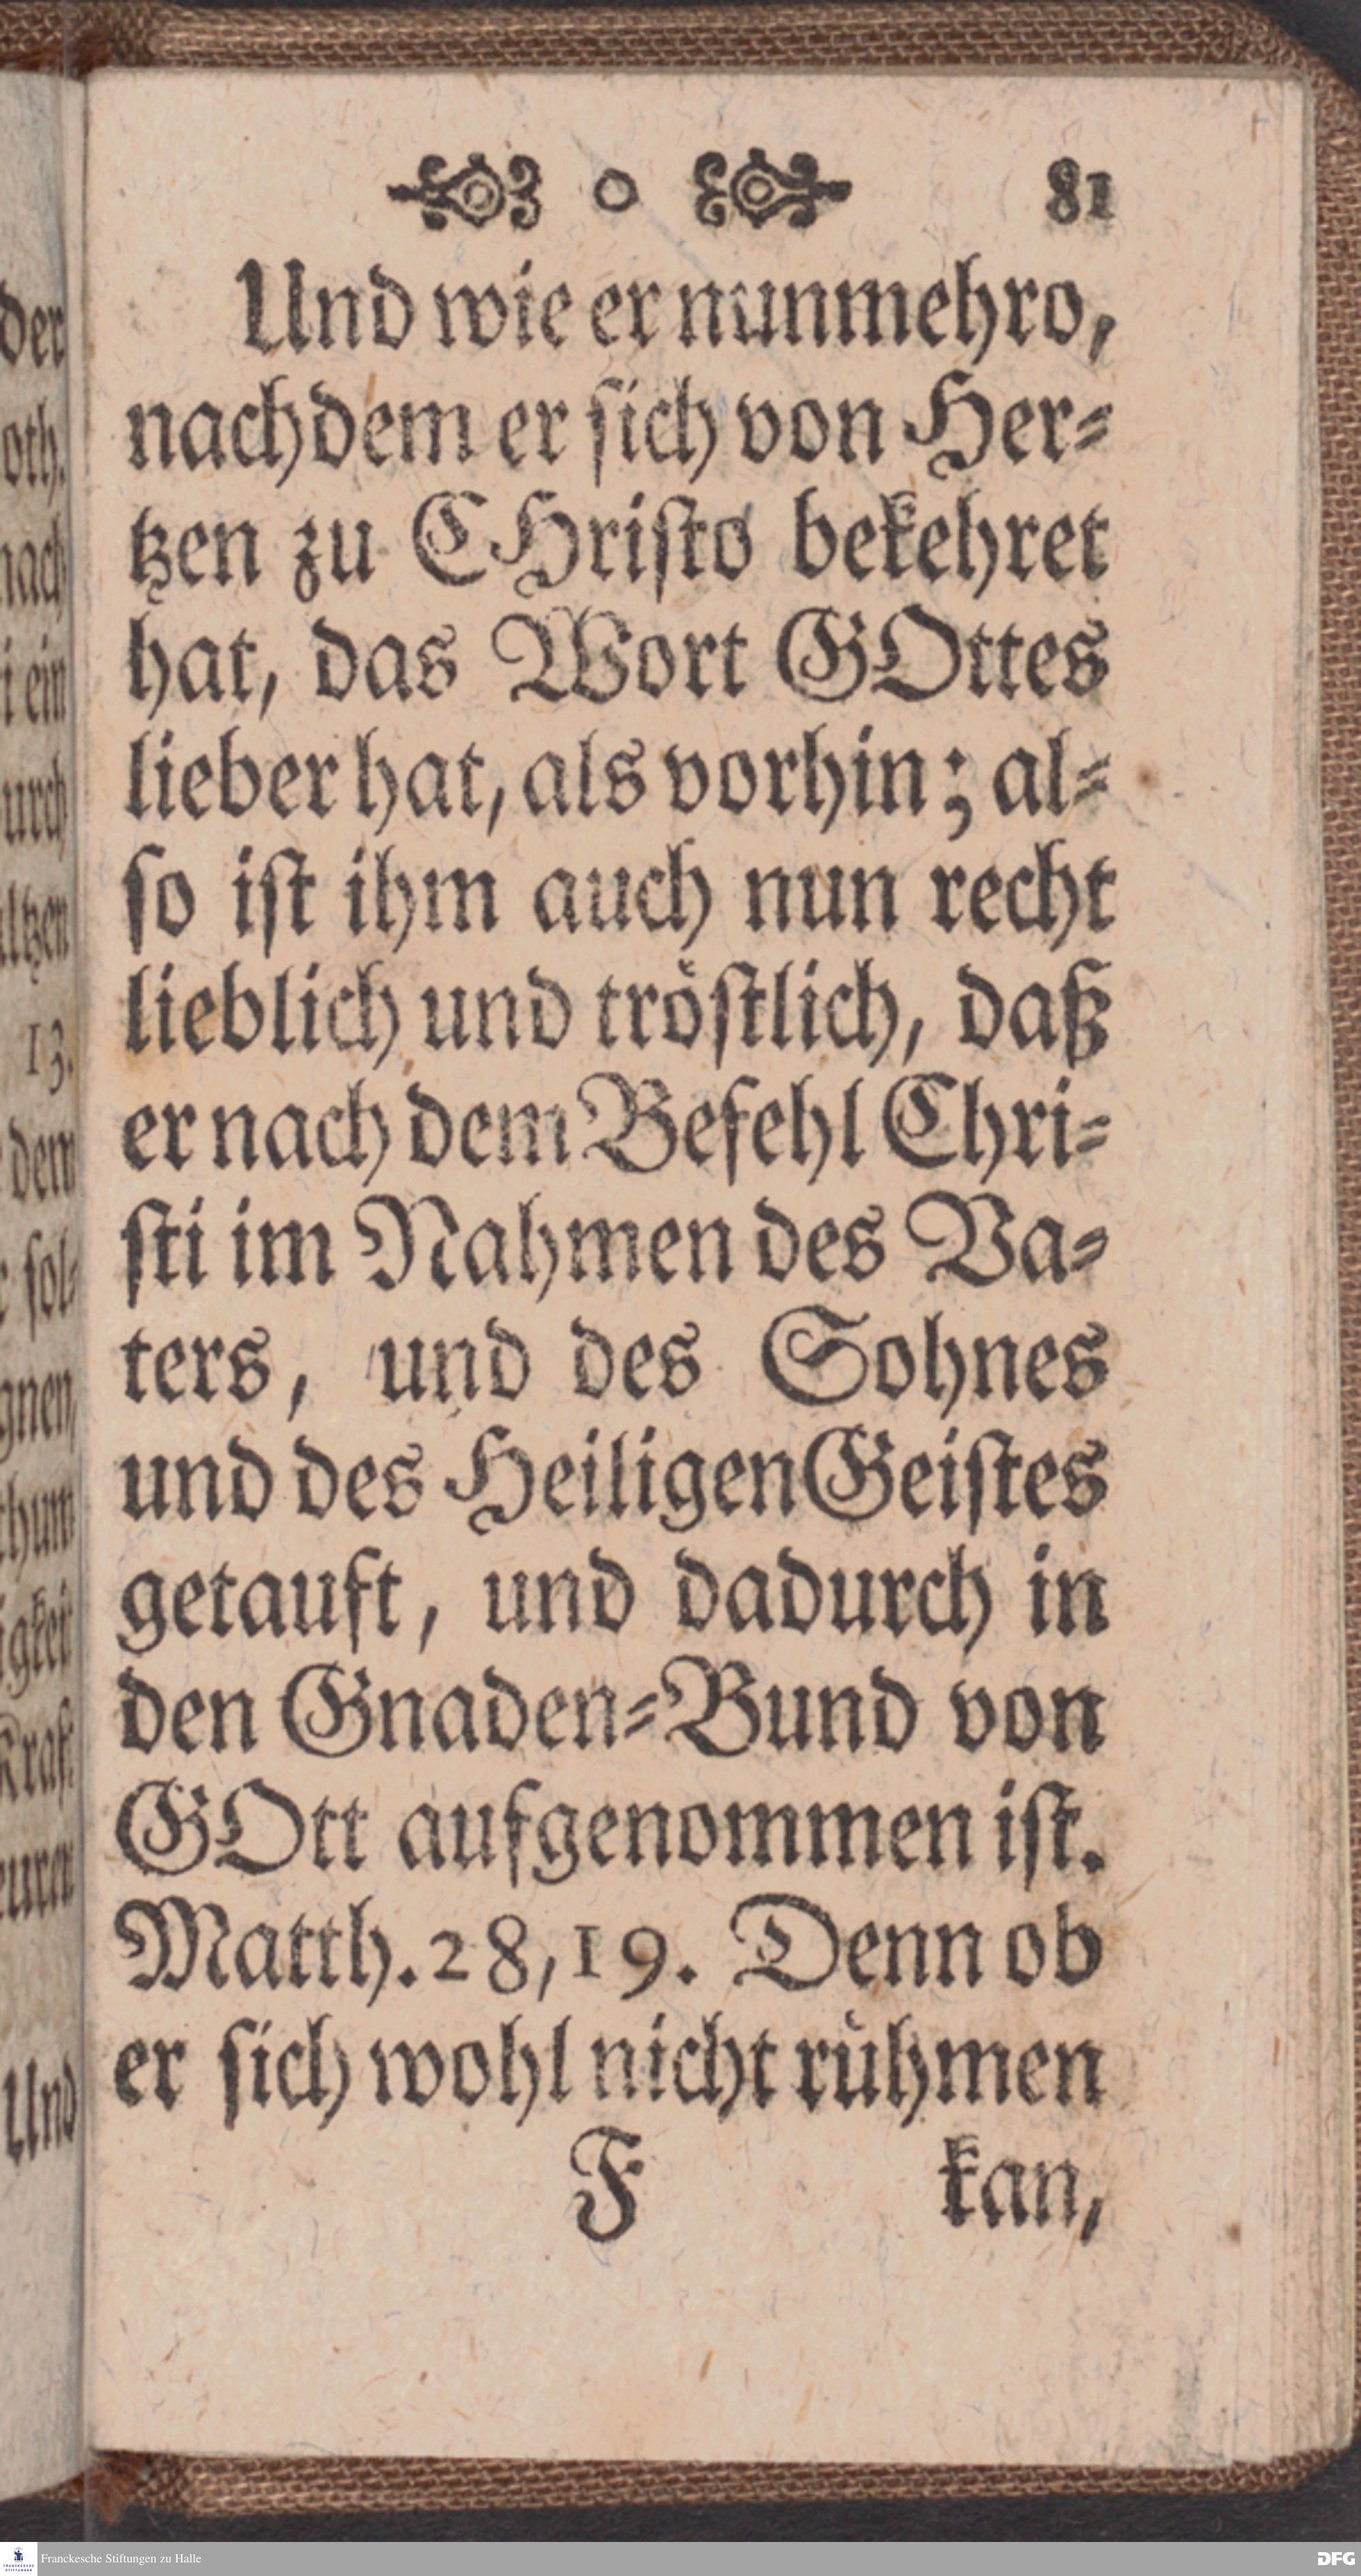 o 81
Und wie er nunmehro,
nachdem er ſich von Her⸗
tzen zu CHriſto bekehret
hat, das Wort GOttes
lieber hat, als vorhin; al⸗
ſo iſt ihm auch nun recht
lieblich und troͤſtlich, daß
er nach dem Befehl Chri⸗
ſti im Nahmen des Va⸗
ters, und des Sohnes
und des Heiligen Geiſtes
getauft, und dadurch in
den Gnaden⸗Bund von
GOtt aufgenommen iſt.
Matth. 28, 19. Denn ob
er ſich wohl nicht ruͤhmen
F kan,
der
oth.
nach
ein
urch
ltzen
13.
dem
ſol⸗
gnen,
thum
igkeit
Und
Franckesche Stiftungen zu Halle
DFG